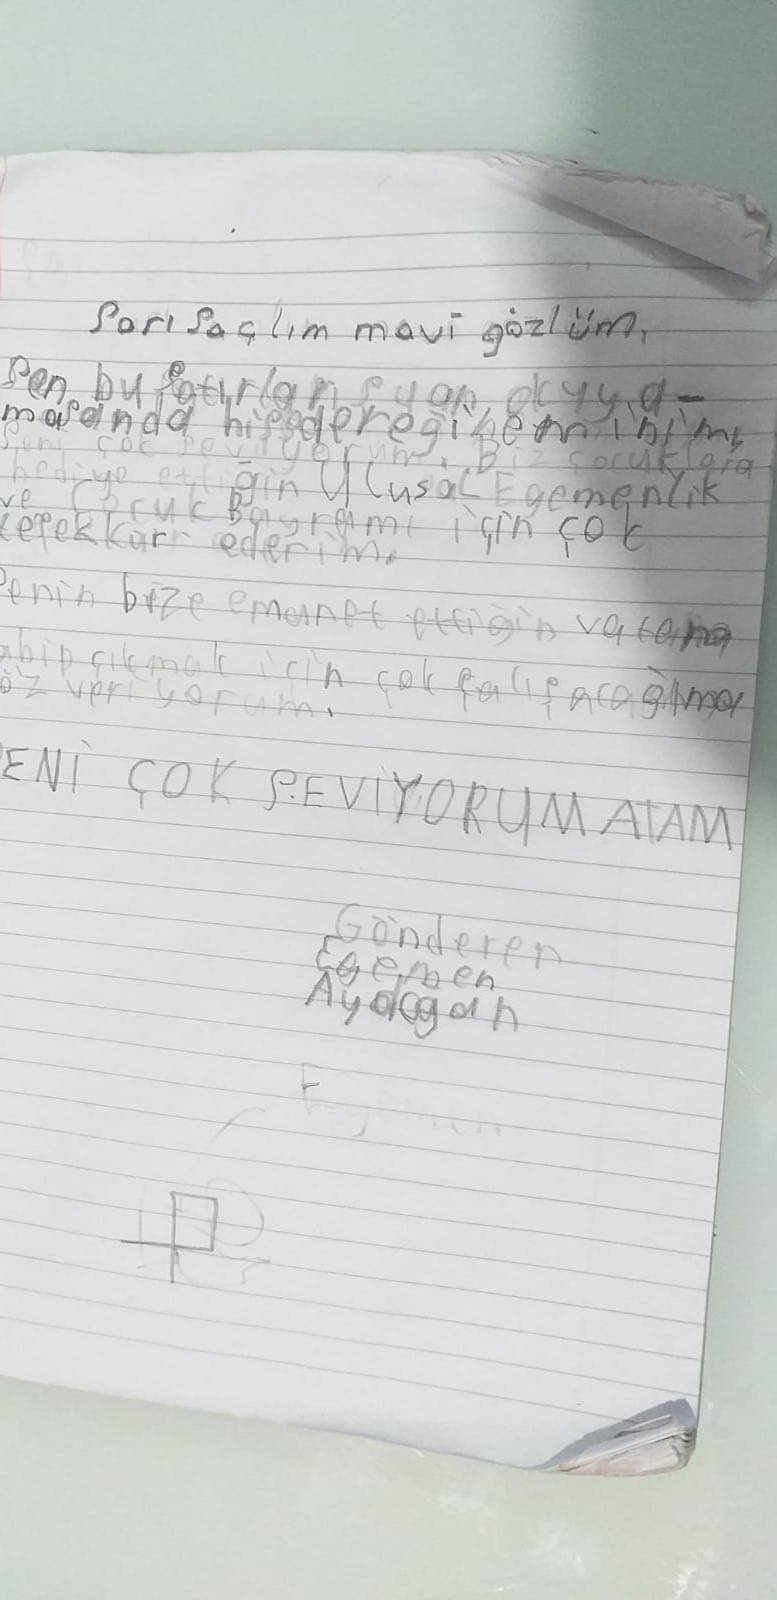 Sarı Saçlım mavi gözlüm,
Sen bu satırları şuan okuya-
masanda hissedereğinemininim,
Seni çok seviyorum. Biz çocuklara
hediye ettiğin Ulusal Egemenlik
ve Çocuk Bayramı için çok
teşekkür ederim.
Senin bize emanet ettiğin vatana
ahip çıkmak için çok çalışacağıma
öz veriyorum.
ENİ ÇOK SEVİYORUM ATAM
Gönderen
Egemen
Aydogan
Egemen